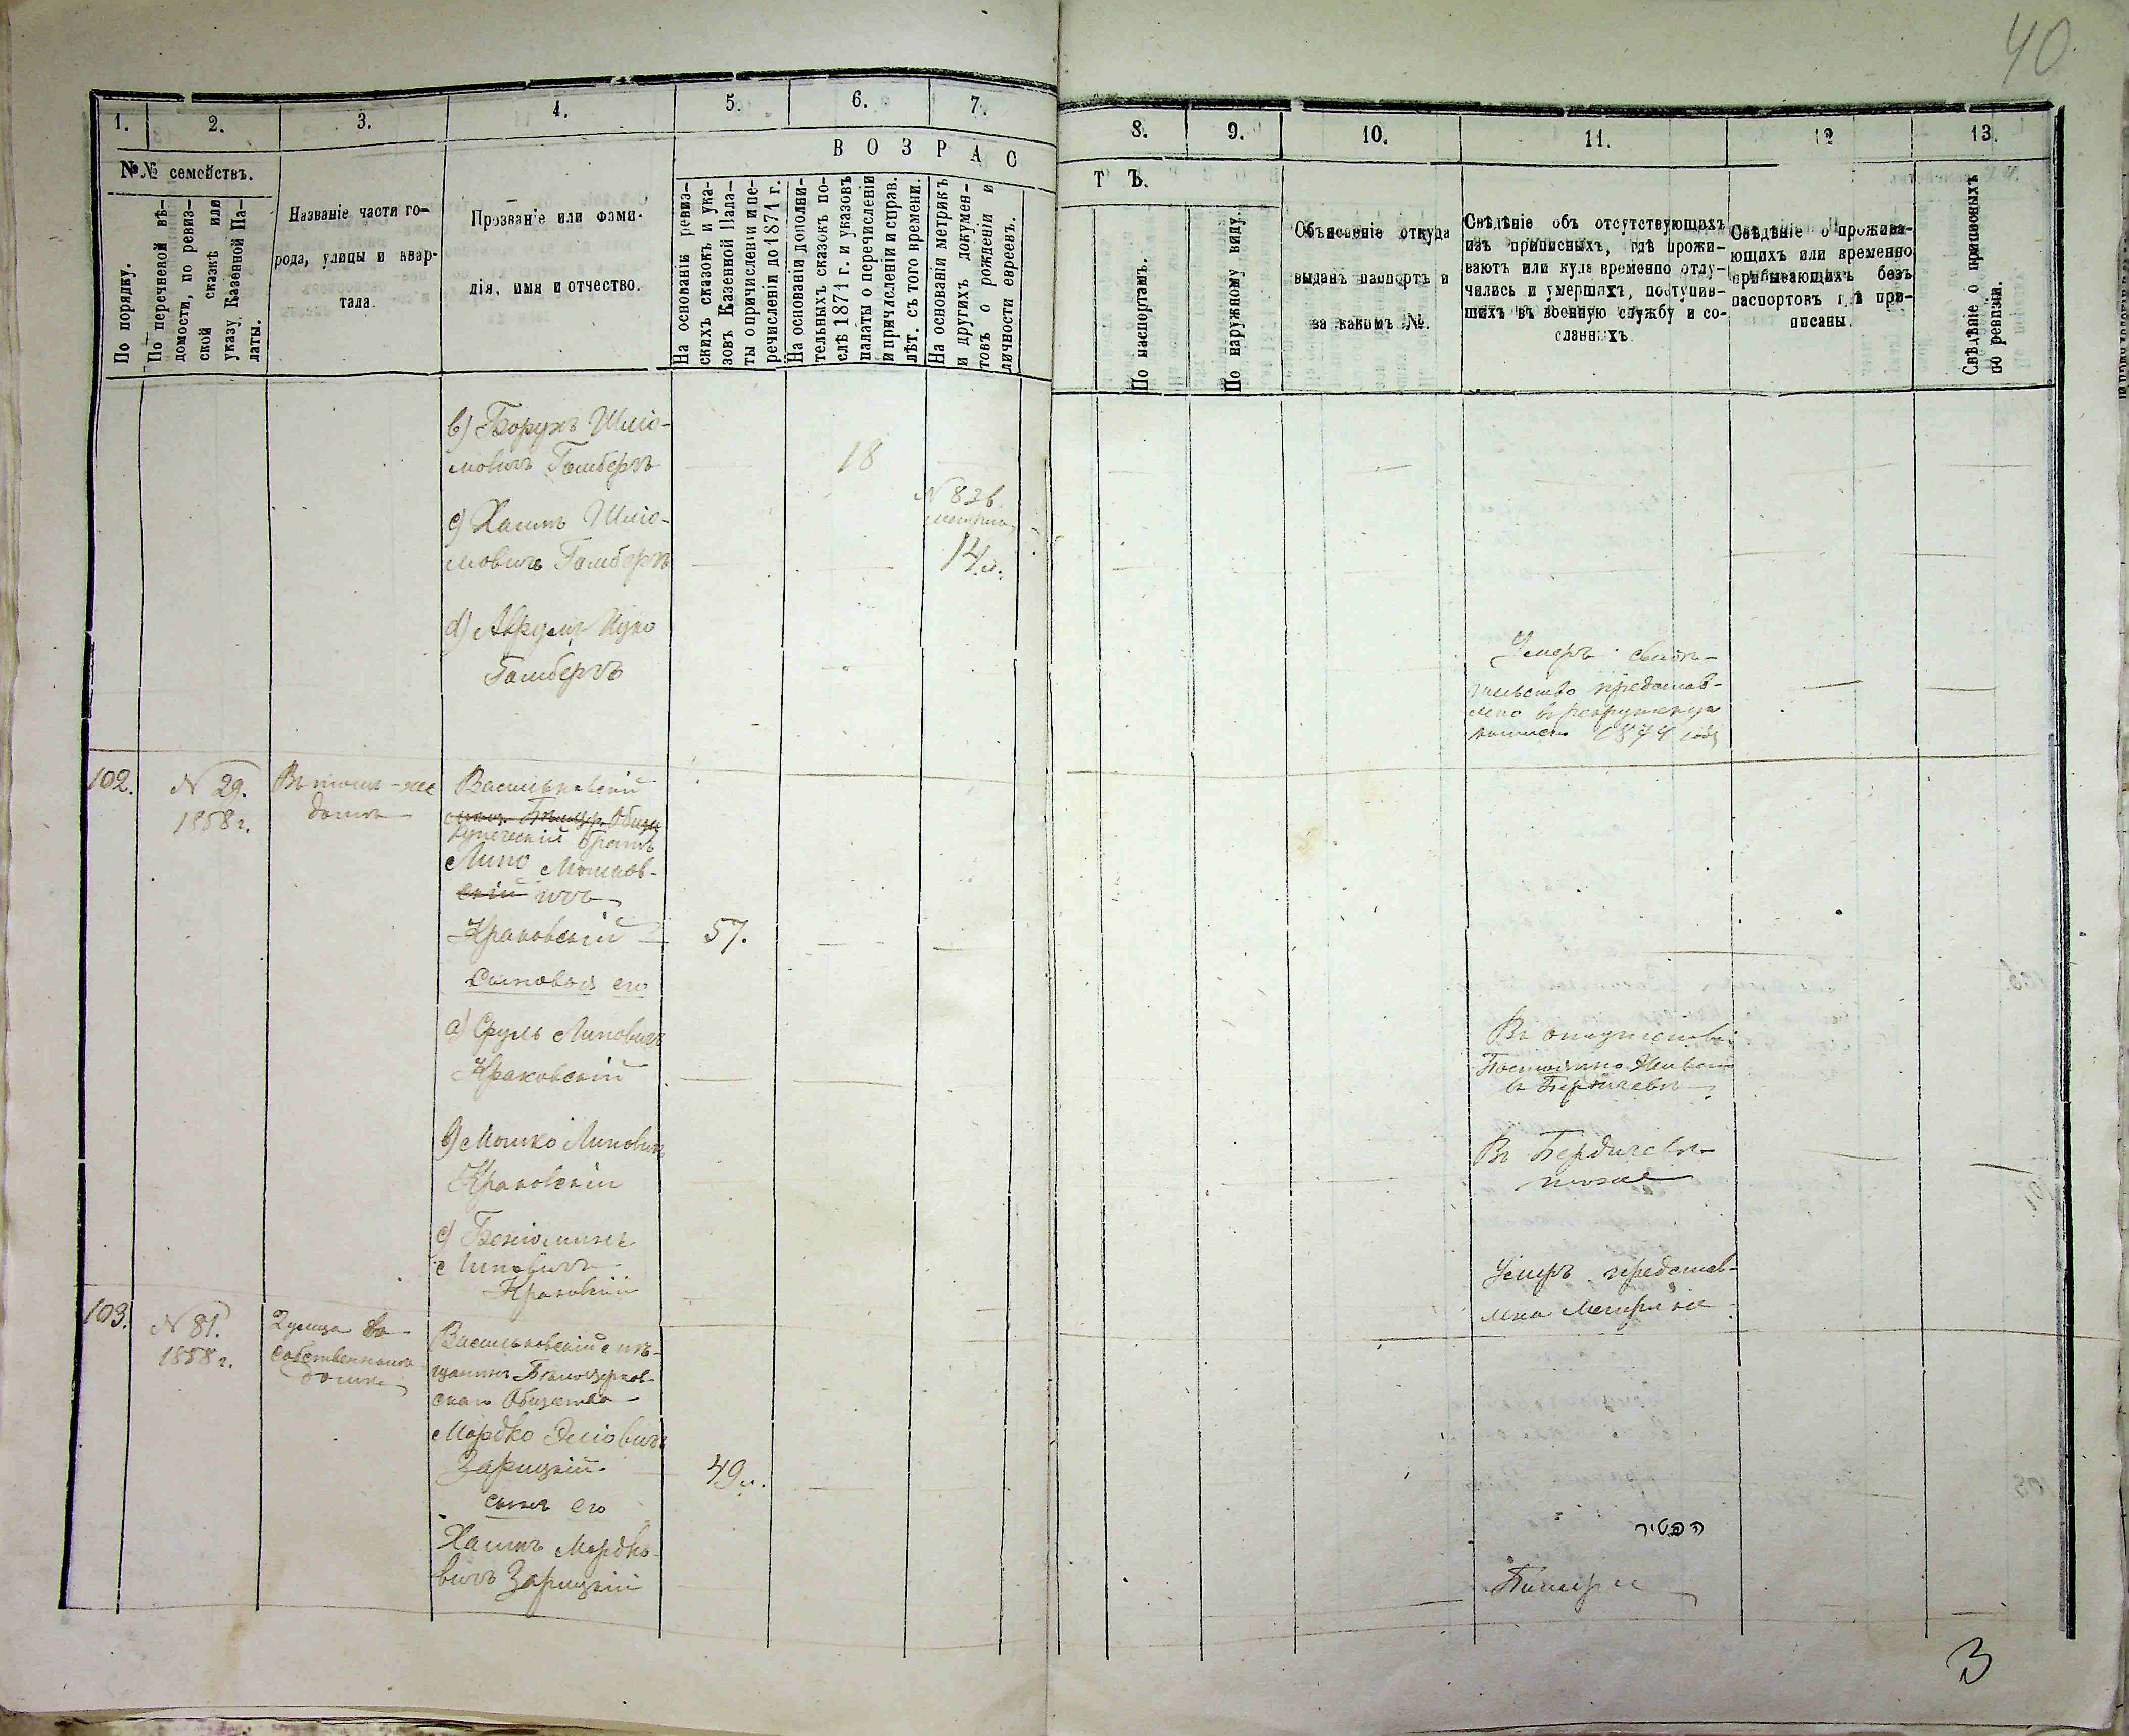 40
1.
2.
3.
4.
5.
6.
7.
8.
9.
10.
11.
12
13.
№№ семействъ.
По порядку.
По перечневой вѣ-
домости, по ревиз-
ской сказкѣ или
указу Казенной Па-
латы.
Названіе части го-
рода, улицы и квар-
тала.
Прозваніе или фами-
лія, имя и отчество.
ВОЗРАС
ТЪ.
На основаніи ревиз-
скихъ сказокъ и ука-
зовъ Казенной Пала-
ты о причисленіи и пе-
речисленіи до 1871 г.
На основаніи дополни-
тельныхъ сказокъ по-
слѣ 1871 г. и указовъ
палаты о перечисленіи
и причисленіи и справ.
лѣт. съ того времени.
На основаніи метрикъ
и другихъ докумен-
товъ о рожденіи и
личности евреевъ.
По паспортамъ.
По наружному виду.
Объясненіе откуда
выданъ паспортъ и
за какимъ №.
Свѣдѣніе объ отсутствующихъ
изъ приписныхъ, гдѣ прожи-
ваютъ или куда временно отлу-
чились и умершихъ, поступив-
шихъ въ военную службу и со-
сланныхъ.
Свѣдѣніе о прожива-
ющихъ или временно
пребывающихъ безъ
паспортовъ гдѣ при-
писаны.
Свѣдѣніе о приписныхъ
по ревизіи.
b) Борухъ Шліо-
мовичъ Гамбергъ
18
c) Хаимъ Шліо-
мовичъ Гамбергъ
№ 826
14 л.
d)
Гамбергъ
Умеръ свидѣ-
тельство представ-
лено
1874 года
102.
№ 29.
1858 г.
Въ томъ-же
домѣ
Васильковскій
купеческій братъ
Липо Мошков-
Краковскій
57.
Сыновья его
a) Сруль Липовичъ
Краковскій
Постоянно
въ Бердичевѣ
b) Мошко Липовичъ
Краковскій
Въ Бердичевѣ
тоже
c) Беніоминъ
Липовичъ
Краковскій
Умеръ представ-
лена Метрика
103.
№ 81.
1858 г.
2 улица въ
собственномъ
домѣ
Васильковскій мѣ-
щанинъ Бѣлоцерков-
скаго Общества
Мордко Эліовичъ
Зарицкій
49 л.
сынъ его
Хаимъ Мордко-
вичъ Зарицкій
הפטיר
3